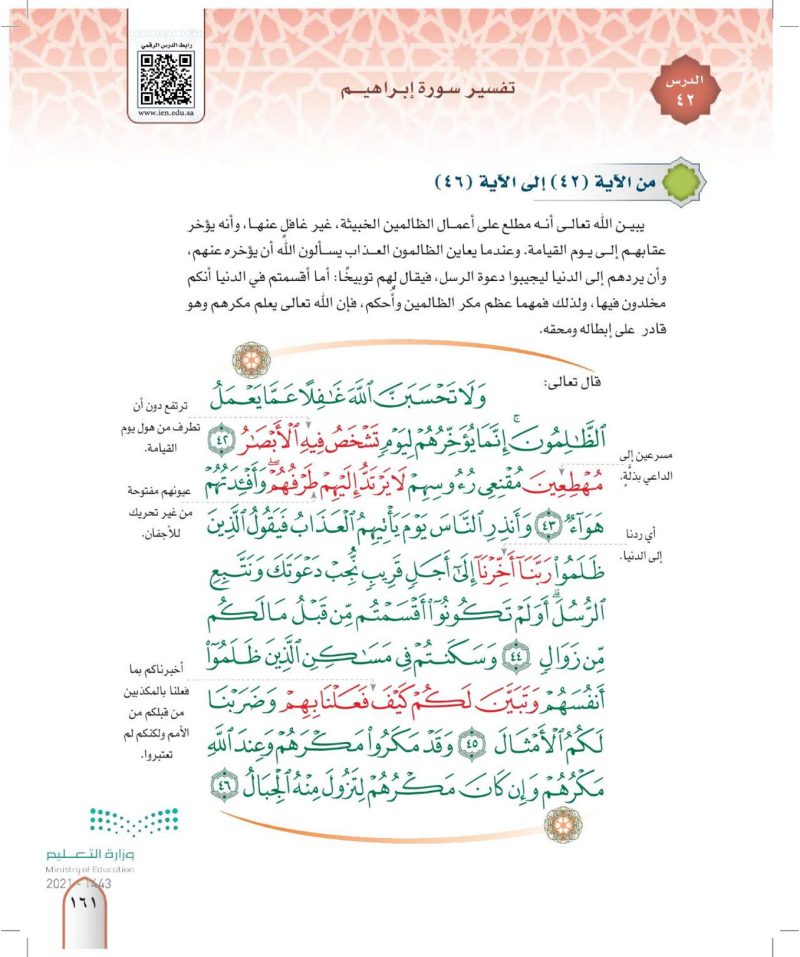 رابط الدرس الرقمي
www.ien.edu.sa
الدرس
٤٢
تفسير سورة إبراهيم
من الآية (٤٢) إلى الآية (٤٦)
يبين الله تعالى أنه مطلع على أعمال الظالمين الخبيثة، غير غافلٍ عنها، وأنه يؤخر
عقابهم إلى يوم القيامة. وعندما يعاين الظالمون العذاب يسألون الله أن يؤخره عنهم،
وأن يردهم إلى الدنيا ليجيبوا دعوة الرسل، فيقال لهم توبيخًا: أما أقسمتم في الدنيا أنكم
مخلدون فيها، ولذلك فمهما عظم مكر الظالمين وأُحكم، فإن الله تعالى يعلم مكرهم وهو
قادر على إبطاله ومحقه.
قال تعالى:
وَلَا تَحْسَبَنَّ ٱللَّهَ غَٰفِلًا عَمَّا يَعْمَلُ
ٱلظَّٰلِمُونَۚ إِنَّمَا يُؤَخِّرُهُمْ لِيَوْمٍ تَشْخَصُ فِيهِ ٱلْأَبْصَٰرُ ٤٢
مُهْطِعِينَ مُقْنِعِي رُءُوسِهِمْ لَا يَرْتَدُّ إِلَيْهِمْ طَرْفُهُمْۖ وَأَفْـِٔدَتُهُمْ
هَوَآءٌ ٤٣ وَأَنذِرِ ٱلنَّاسَ يَوْمَ يَأْتِيهِمُ ٱلْعَذَابُ فَيَقُولُ ٱلَّذِينَ
ظَلَمُوا۟ رَبَّنَآ أَخِّرْنَآ إِلَىٰٓ أَجَلٍ قَرِيبٍ نُّجِبْ دَعْوَتَكَ وَنَتَّبِعِ
ٱلرُّسُلَۗ أَوَلَمْ تَكُونُوٓا۟ أَقْسَمْتُم مِّن قَبْلُ مَا لَكُم
مِّن زَوَالٍ ٤٤ وَسَكَنتُمْ فِي مَسَٰكِنِ ٱلَّذِينَ ظَلَمُوٓا۟
أَنفُسَهُمْ وَتَبَيَّنَ لَكُمْ كَيْفَ فَعَلْنَا بِهِمْ وَضَرَبْنَا
لَكُمُ ٱلْأَمْثَالَ ٤٥ وَقَدْ مَكَرُوا۟ مَكْرَهُمْ وَعِندَ ٱللَّهِ
مَكْرُهُمْ وَإِن كَانَ مَكْرُهُمْ لِتَزُولَ مِنْهُ ٱلْجِبَالُ ٤٦
مسرعين إلى
الداعي بذلَّةٍ.
أي ردنا
إلى الدنيا.
ترتفع دون أن
تطرف من هول يوم
القيامة.
عيونهم مفتوحة
من غير تحريك
للأجفان.
أخبرناكم بما
فعلنا بالمكذبين
من قبلكم من
الأمم ولكنكم لم
تعتبروا.
وزارة التعليم
Ministry of Education
2021 - 1443
١٦١